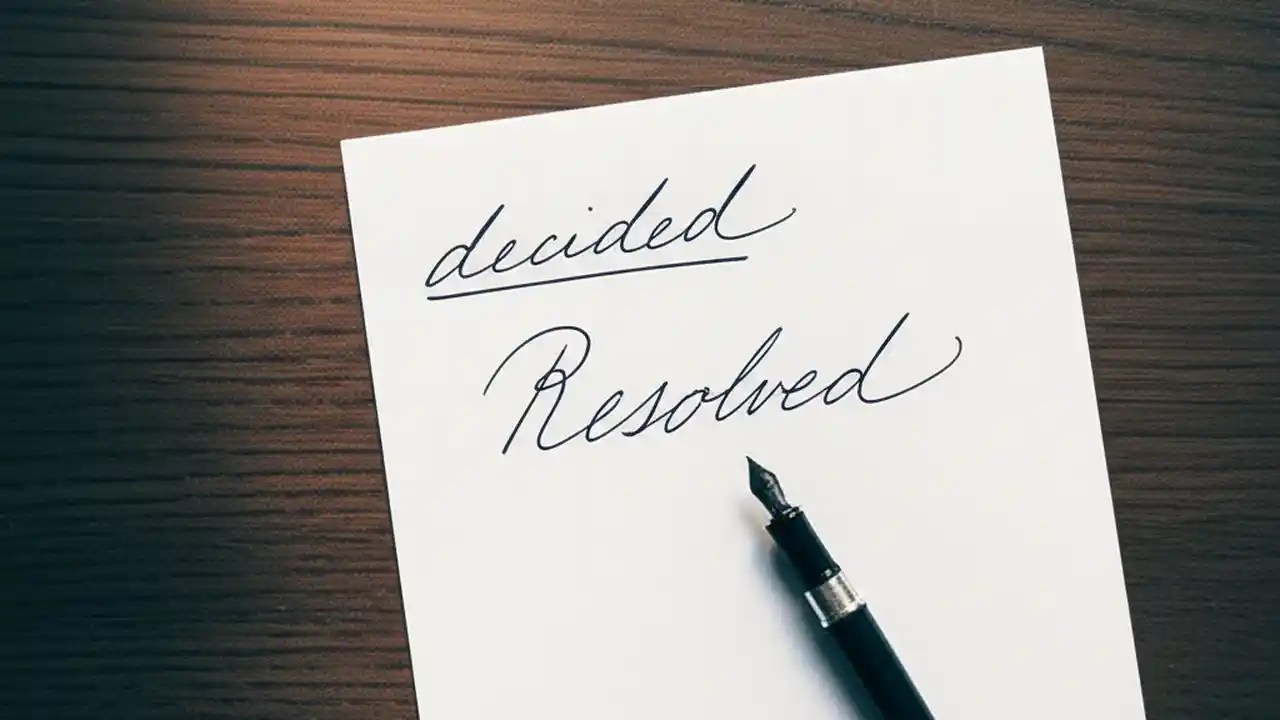 decided
Resolved